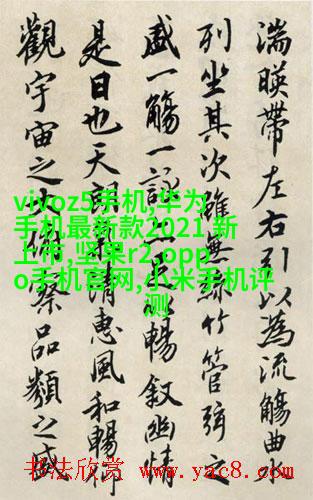 湍暎帶左右引以為流觴曲
列坐其次雖無絲竹管弦之
盛一觴一詠暢叙幽情
是日也天朗清惠風和暢仰
觀宇宙之大俯察品類之盛
vivoz5手机,华为
手机最新款2021 新
上市,坚果r2,opp
o手机官网,小米手机评
测
书法欣赏 www.yac8.com